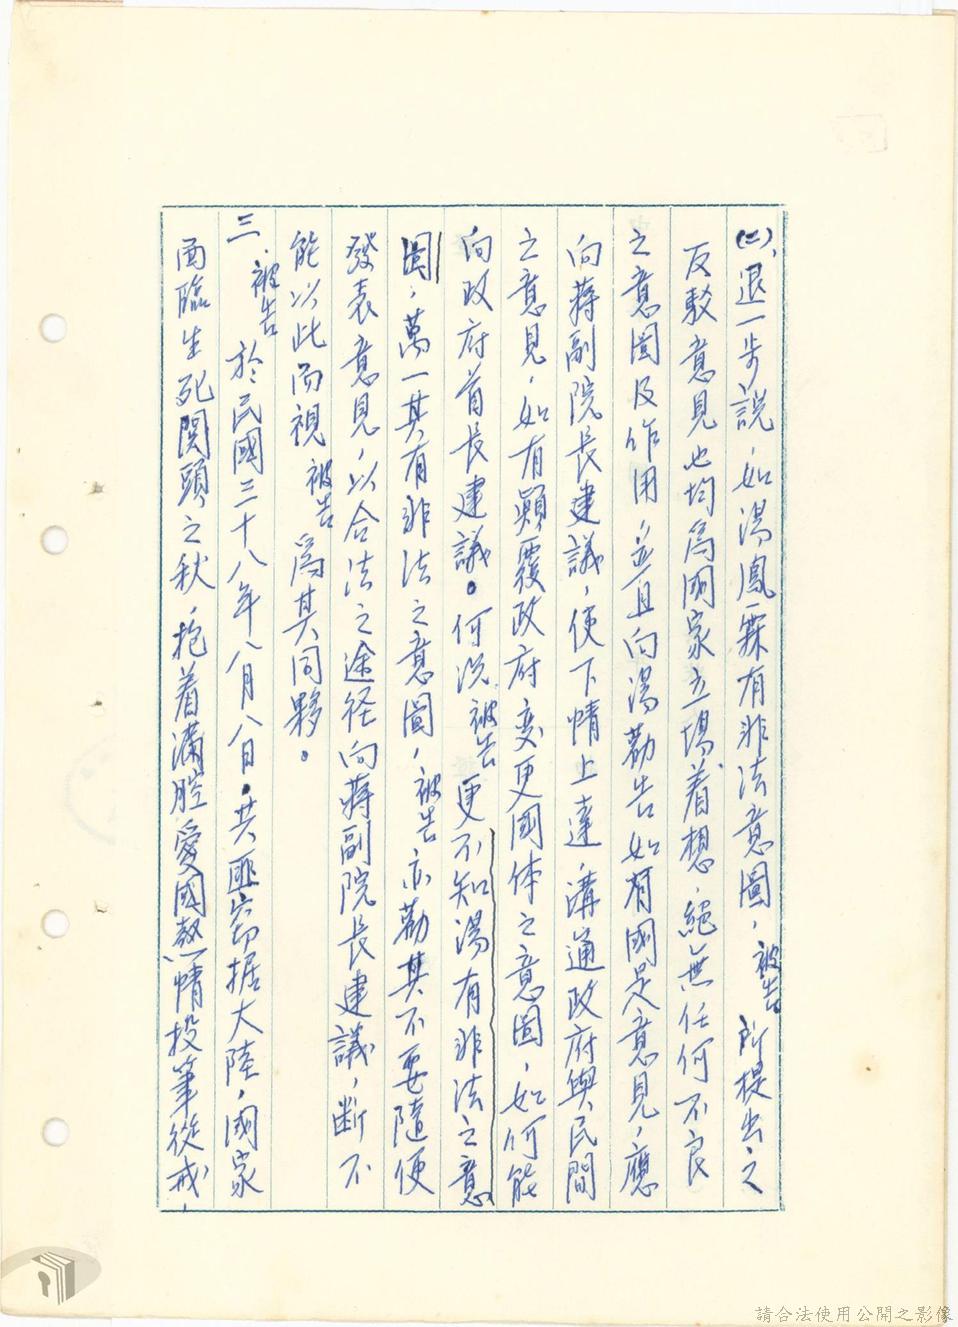 (二)、退一步說，如湯鳳霖有非法意圖，被告所提出之
反駁意見也均為國家立場着想，絕無任何不良
之意圖及作用，並且向湯勸告如有國是意見，應
向蔣副院長建議，使下情上達，溝通政府與民間
之意見，如有顛覆政府变更國体之意圖，如何能
向政府首長建議。何況被告更不知湯有非法之意
圖，萬一其有非法之意圖，被告亦勸其不要隨便
發表意見，以合法之途径向蔣副院長建議，断不
能以此而視被告為其同夥。
三、被告於民國三十八年八月八日。共匪窃据大陸，國家
面臨生死関頭之秋，抱着滿腔愛國熱情投筆從戎，
請合法使用公開之影像